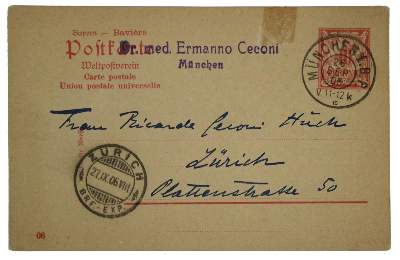 Bayern - Bavière
Postkarte
Dr. med. Ermanno Ceconi
Weltpostverein
München
Carte postale
Union postale universelle
MÜNCHEN 1. B.P.
26
SEP
06
V 11-12 K
c
Frau Ricarda Ceconi Huch
Zürich
Plattenstrasse 50
ZÜRICH
27.IX.06.VIII
BRF.EXP.
06